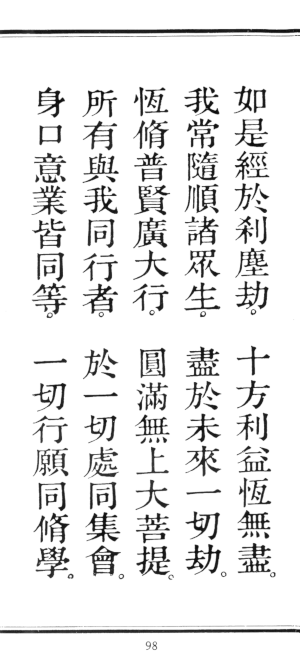 如是經於刹塵劫。十方利益恆無盡。
我常隨順諸眾生。盡於未來一切劫。
恆脩普賢廣大行。圓滿無上大菩提。
所有與我同行者。於一切處同集會。
身口意業皆同等。一切行願同脩學。
98